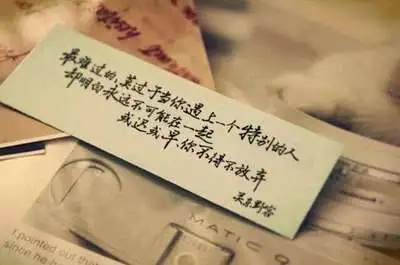 最难过的，莫过于当你遇上一个特别的人
却明白永远不可能在一起
或迟或早，你不得不放弃
MATIC 9
I pointed out that
since he